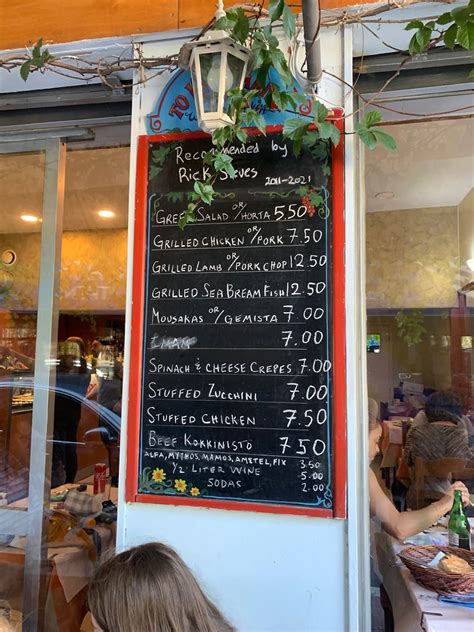 TO
Recommended by
Rick Steves 2011-2021
GREEK SALAD OR HORTA 5.50
GRILLED CHICKEN OR PORK 7.50
GRILLED LAMB OR PORK CHOP 12.50
GRILLED SEA BREAM FISH 12.50
MOUSAKAS OR GEMISTA 7.00
7.00
SPINACH & CHEESE CREPES 7.00
STUFFED ZUCCHINI 7.50
STUFFED CHICKEN 7.50
BEEF KOKKINISTO 7.50
ALFA, MYTHOS, MAMOS, AMSTEL, FIX 3.50
1/2 LITER WINE 5.00
SODAS 2.00